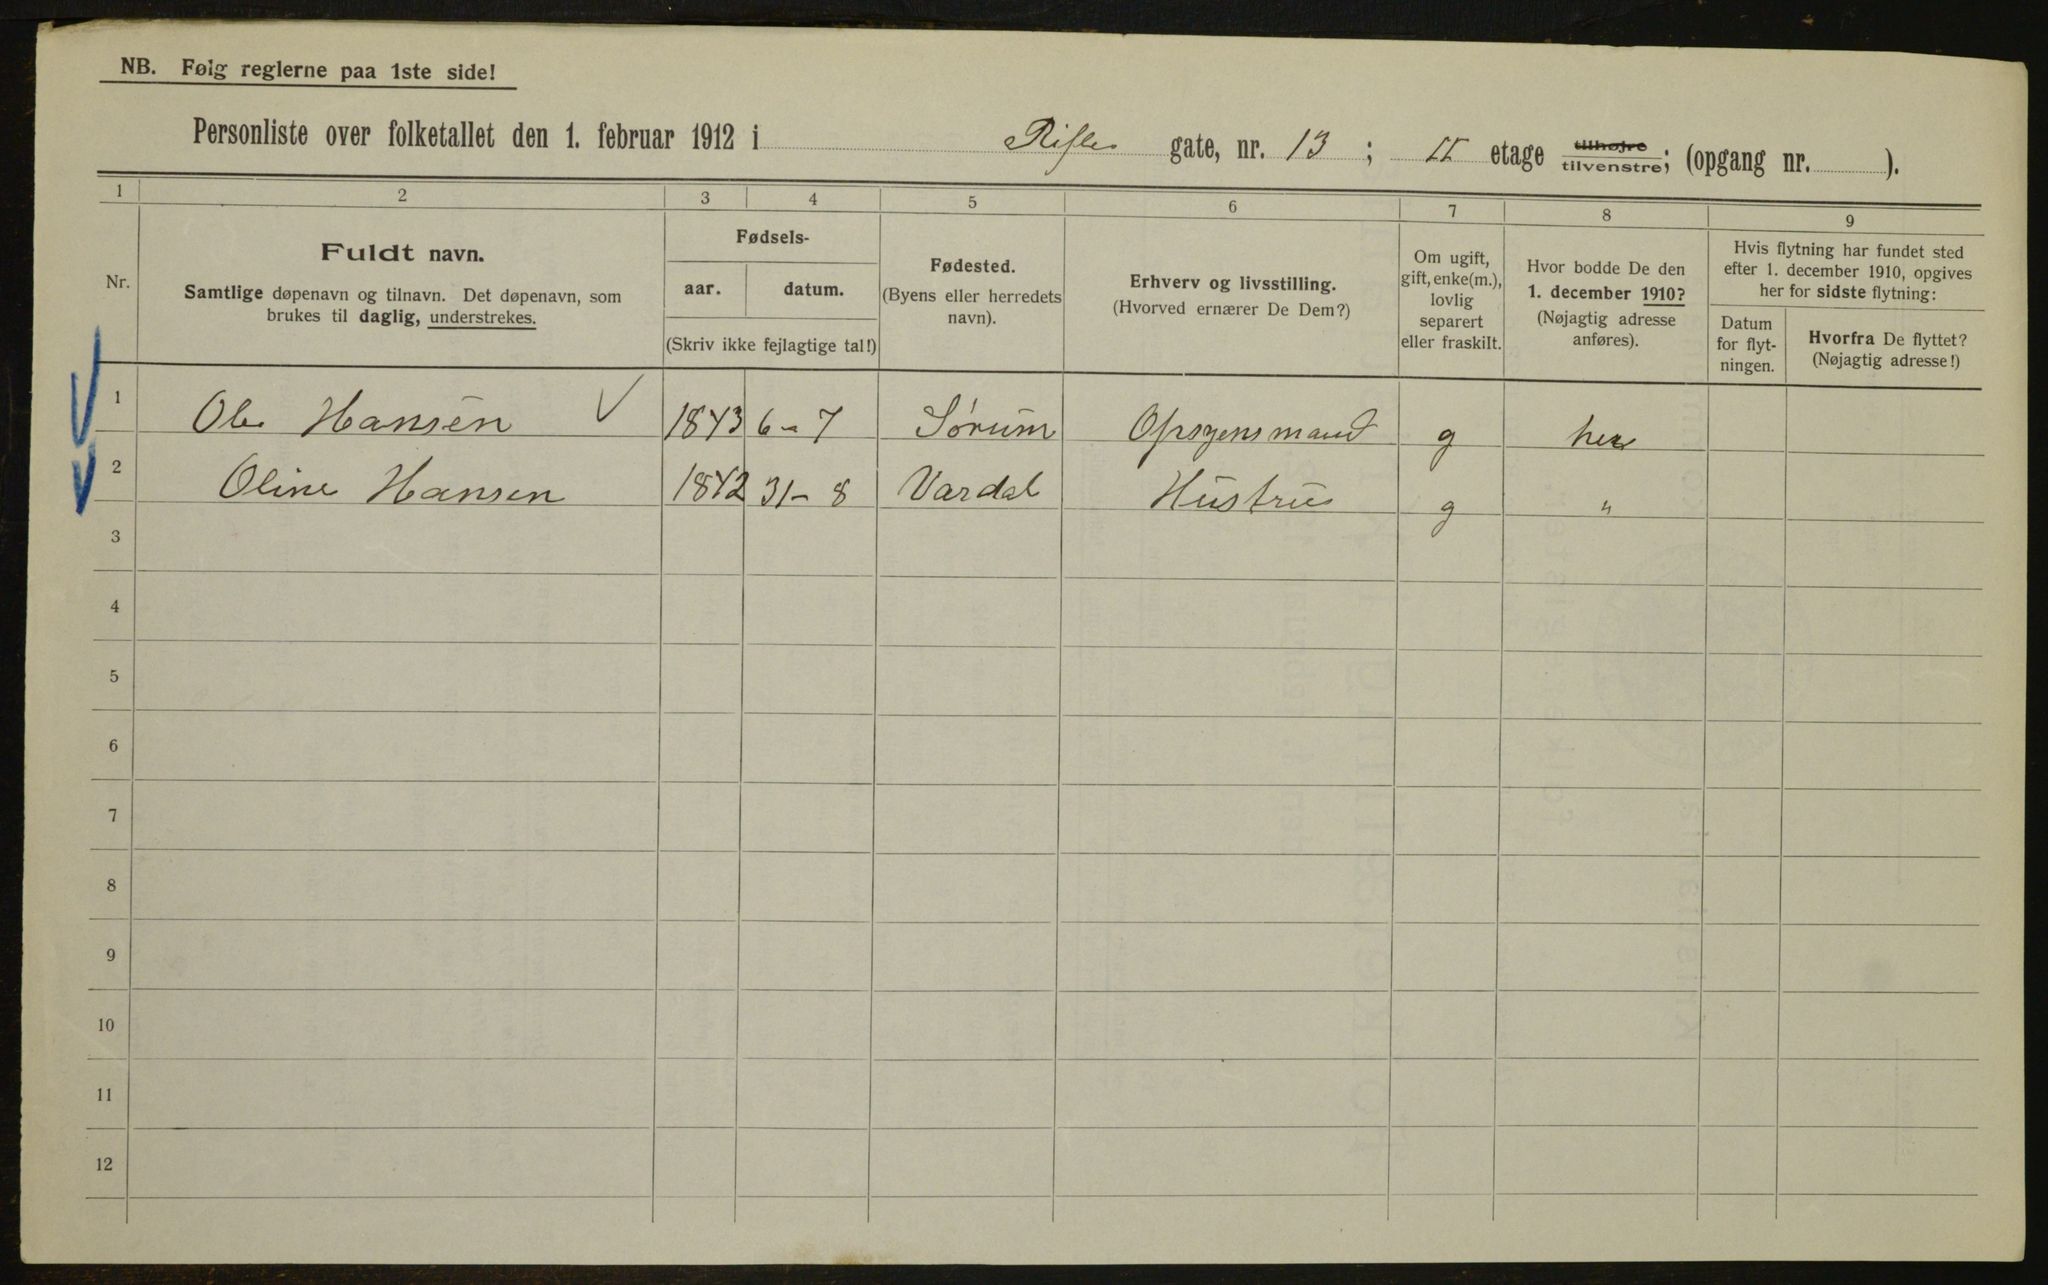 NB. Følg reglerne paa 1ste side!
Personliste over folketallet den 1. februar 1912 i Rifles gate, nr. 13 ; II etage tilhøjre/tilvenstre; (opgang nr. ).
1 2 3 4 5 6 7 8 9
Nr.
Fuldt navn.
Samtlige døpenavn og tilnavn. Det døpenavn, som
brukes til daglig, understrekes.
Fødsels-
aar. datum.
(Skriv ikke fejlagtige tal!)
Fødested.
(Byens eller herredets
navn).
Erhverv og livsstilling.
(Hvorved ernærer De Dem?)
Om ugift,
gift, enke(m.),
lovlig
separert
eller fraskilt.
Hvor bodde De den
1. december 1910?
(Nøjagtig adresse
anføres).
Hvis flytning har fundet sted
efter 1. december 1910, opgives
her for sidste flytning:
Datum
for flyt-
ningen.
Hvorfra De flyttet?
(Nøjagtig adresse!)
1 Ole Hansen 1843 6-7 Sørum Opsyensmand g her
2 Oline Hansen 1842 31-8 Vardal Hustru g "
3
4
5
6
7
8
9
10
11
12